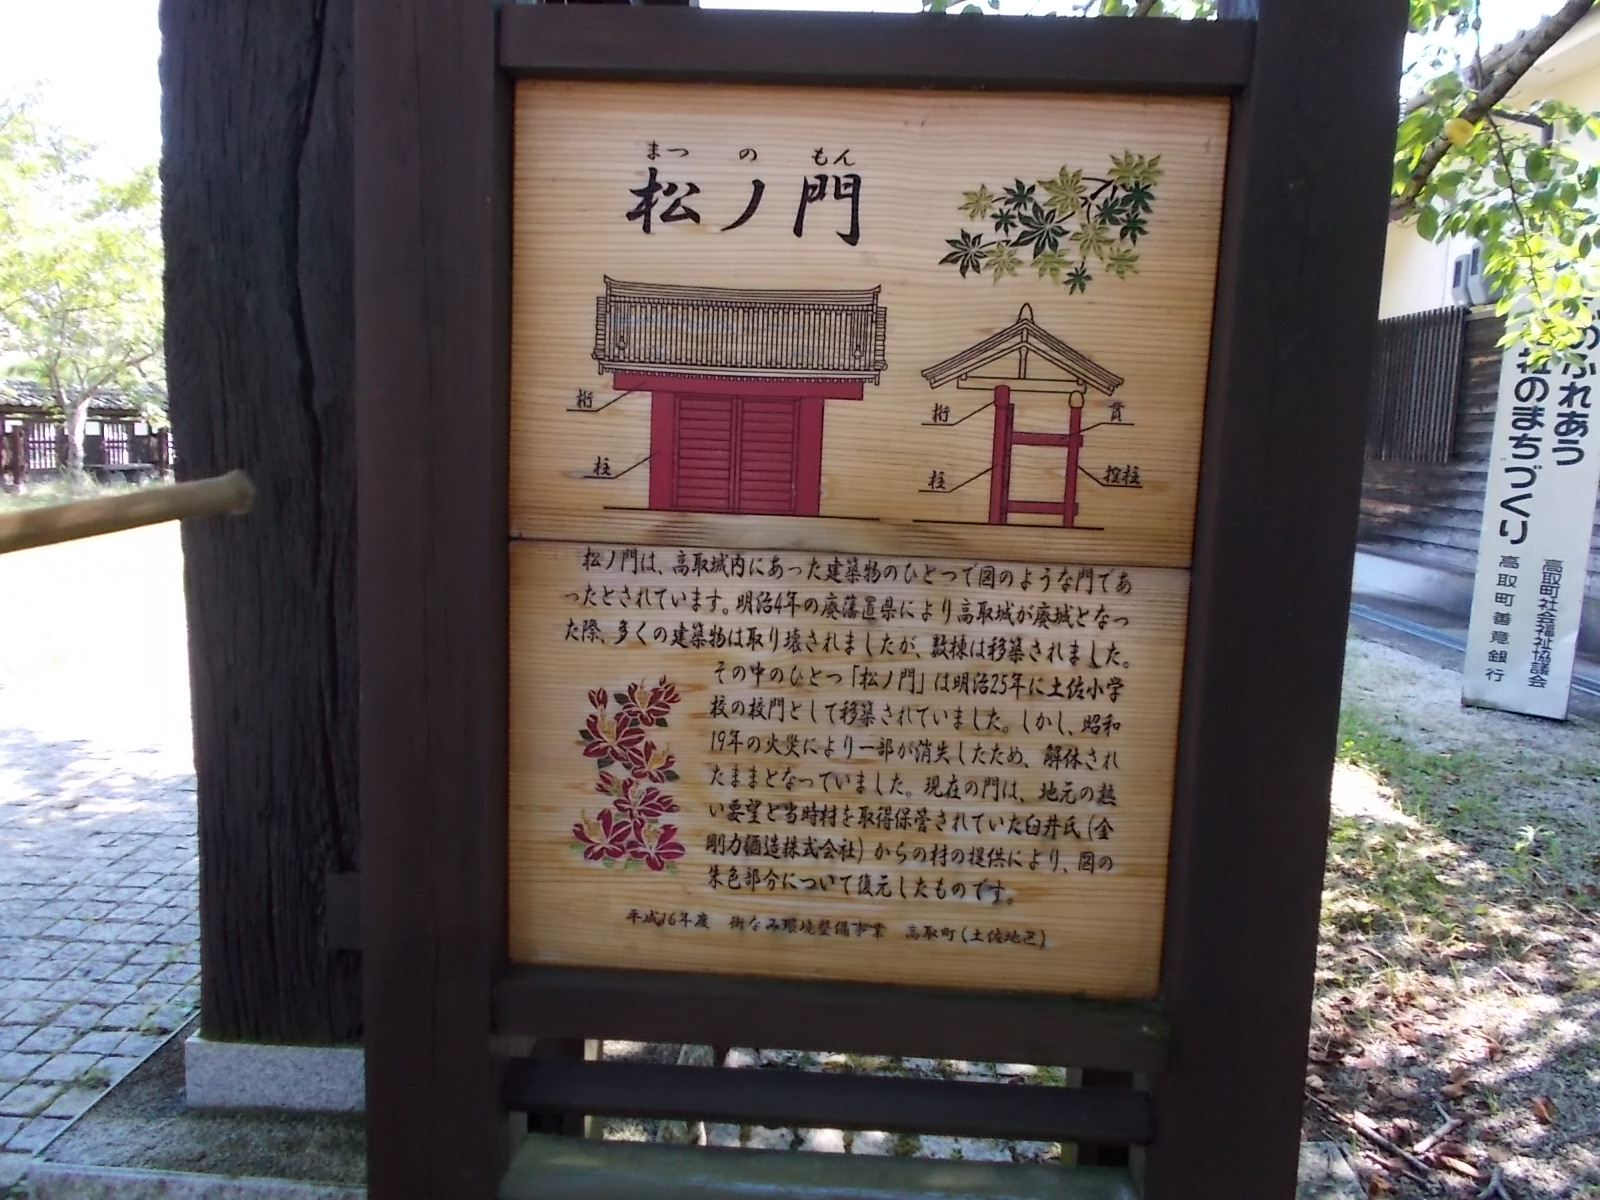 まつ の もん
松ノ門
桁
柱
桁
貫
柱
控柱
松ノ門は、高取城内にあった建築物のひとつで図のような門であ
ったとされています。明治4年の廃藩置県により高取城が廃城となっ
た際、多くの建築物は取り壊されましたが、数棟は移築されました。
その中のひとつ「松ノ門」は明治25年に土佐小学
校の校門として移築されていました。しかし、昭和
19年の火災により一部が消失したため、解体され
たままとなっていました。現在の門は、地元の熱
い要望と当時材を取得保管されていた臼井氏(金
剛力酒造株式会社)からの材の提供により、図の
朱色部分について復元したものです。
平成16年度 街なみ環境整備事業 高取町(土佐地区)
のふれあう
社のまちづくり
高取町社会福祉協議会
高取町善意銀行